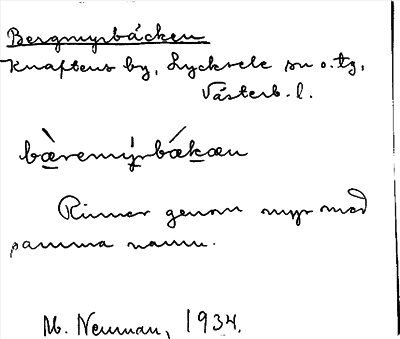 Bergmyrbäcken
Knaftens by, Lycksele sn o. tg,
Västerb. l.
bæ̀remýrbǽkæn
Rinner genom myr med
samma namn.
M. Neuman, 1934.